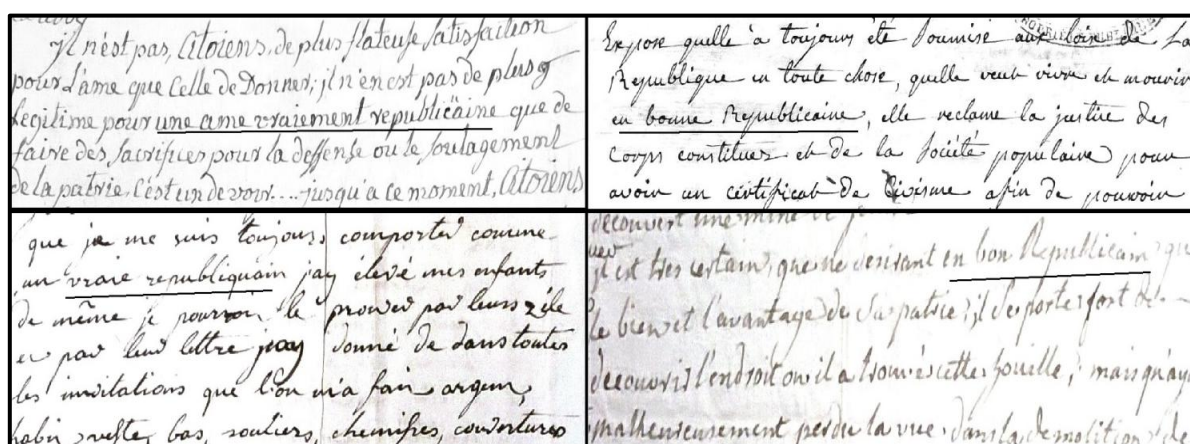 jl n'est pas, Citoiens, de plus flateuse satisfaction
pour L'ame que Celle de Donner; jl n'en est pas de plus
Legitime pour une ame vraiement republicaine que de
faire des sacrifices pour la deffense ou le soulagement
de la patrie. C'est un devoir.... jusqu'a ce moment, Citoiens
Expose quelle à toujours été soumise aux loix de La
Republique en toute chose, quelle veut vivre et mourir
en bonne Republicaine, elle reclame la justice des
Corps constitues et de la Société populaire pour
avoir un certificat de Civisme afin de pouvoir
que je me suis toujours comporter comme
un vraie republiquain jay élevé mes enfants
de même je pourroi le prouver par leurs zéle
et par leur lettre jay donné de dans toutes
les invitations que l'on m'a fait argent,
habit veste, bas, souliers, chemises, couvertures
decouvert une mine de
jl est tres certain, que ne desirant en bon Republicain que
le bien et l'avantage de sa patrie; jl se porte fort de
decouvrir l'endroit ou il a trouvés cette houille; mais qu'ayant
malheureusement perdu la vue dans la demolition de